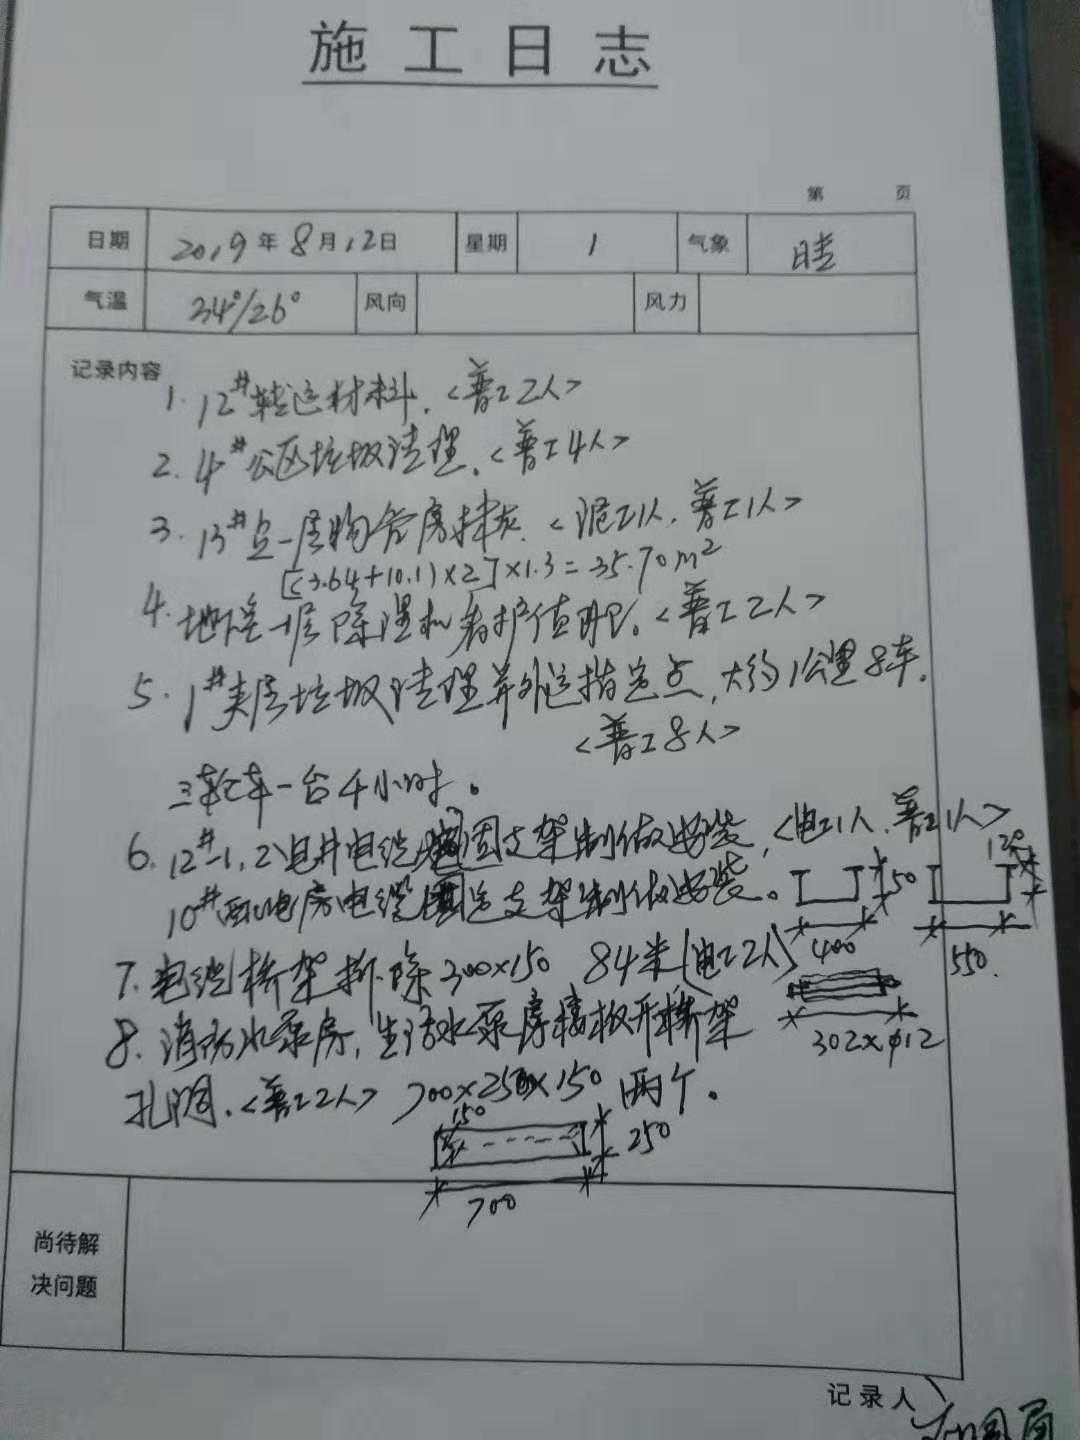 施工日志
第 页
日期 2019年8月12日 星期 1 气象 晴
气温 34°/26° 风向 风力
记录内容
1. 12#转运材料.<普工2人>
2. 4#公区垃圾清理.<普工4人>
3. 13#一层物管房抹灰.<泥工1人.普工1人>
[(3.64+10.1)×2]×1.3=35.70m²
4. 地下室一层除湿机看护值班.<普工2人>
5. 1#夹层垃圾清理并外运指定点,大约1公里8车.
<普工8人>
三轮车一台4小时。
6. 12#-1,2电井电缆固支架制做安装,<电工1人.普工1人>
10#配电房电缆支架制做安装。
50
120
400
550.
7. 电缆桥架拆除300×150 84米(电工2人)
302×φ12
8. 消防水泵房,生活水泵房楼板开桥架
孔洞.<普工2人> 700×250×150 两个.
150
250
700
尚待解
决问题
记录人